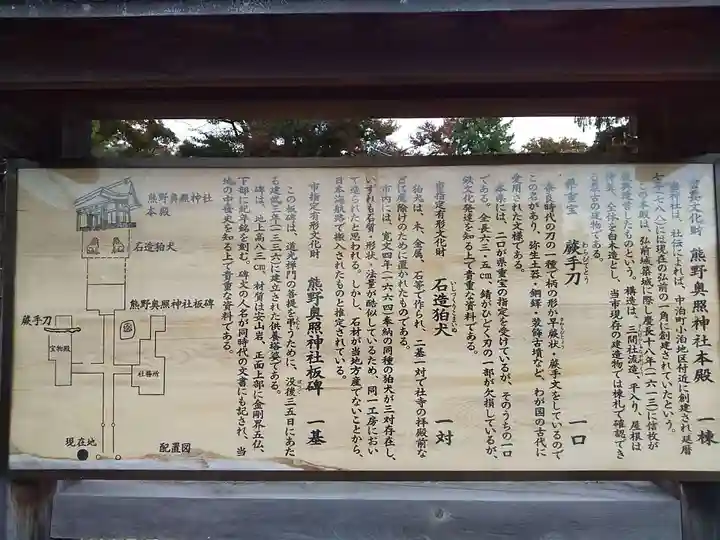 熊野奥照神社本殿　一棟
当神社は、社伝によれば、中泊町小泊地区付近に創建され延暦
七年(七八八)には現在の弘前の一角に創建されていたという。
この本殿は、弘前城築城に際し慶長十八年(一六一三)に信枚が
という。構造は、三間社流造、平入り、屋根は
全体を白木造とし、当市現存の建造物では棟札で確認でき
最古の建物である。
県重宝　蕨手刀　一口
わらびてとう
奈良時代の刀の一種で柄の形が早蕨状・蕨手文をしているので
この名があり、弥生土器・銅鐸・装飾古墳など、わが国の古代に
愛用された文様である。
本県には、二口が県重宝の指定を受けているが、そのうちの一口
である。全長六三・五㎝、錆がひどく刀の一部が欠損しているが、
鉄文化発達を知る上で貴重な資料である。
市指定有形文化財　石造狛犬　一対
狛犬は、木、金属、石等で作られ、二基一対で社寺の拝殿前な
どに魔除けのために置かれたものである。
市内には、寛文四年(一六六四)奉納の同種の狛犬が三対存在し、
いずれも石質・形状・法量が酷似しているため、同一工房におい
て造られたと思われる。しかし、石材が当地方産でないことから、
日本海航路で搬入されたものと推定されている。
市指定有形文化財　熊野奥照神社板碑　一基
この板碑は、道光禅門の菩提を弔うために、没後三五日にあた
る建武三年(一三三六)に建立された供養塔婆である。
碑は、地上高八三㎝、材質は安山岩、正面上部に金剛界五仏、
下部に紀年銘を刻む。碑文の人名が同時代の文書にも記され、当
地の中世史を知る上で貴重な資料である。
熊野奥照神社
本殿
石造狛犬
熊野奥照神社板碑
蕨手刀
宝物殿
社務所
現在地
配置図